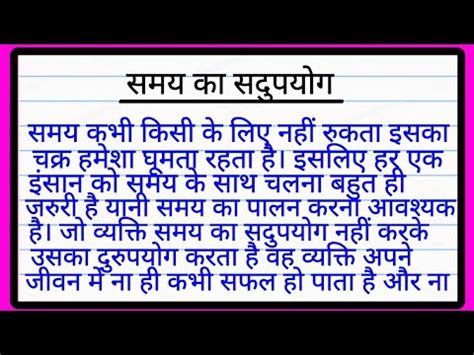 समय का सदुपयोग
समय कभी किसी के लिए नहीं रुकता इसका
चक्र हमेशा घूमता रहता है। इसलिए हर एक
इंसान को समय के साथ चलना बहुत ही
जरुरी है यानी समय का पालन करना आवश्यक
है। जो व्यक्ति समय का सदुपयोग नहीं करके
उसका दुरुपयोग करता है वह व्यक्ति अपने
जीवन में ना ही कभी सफल हो पाता है और ना